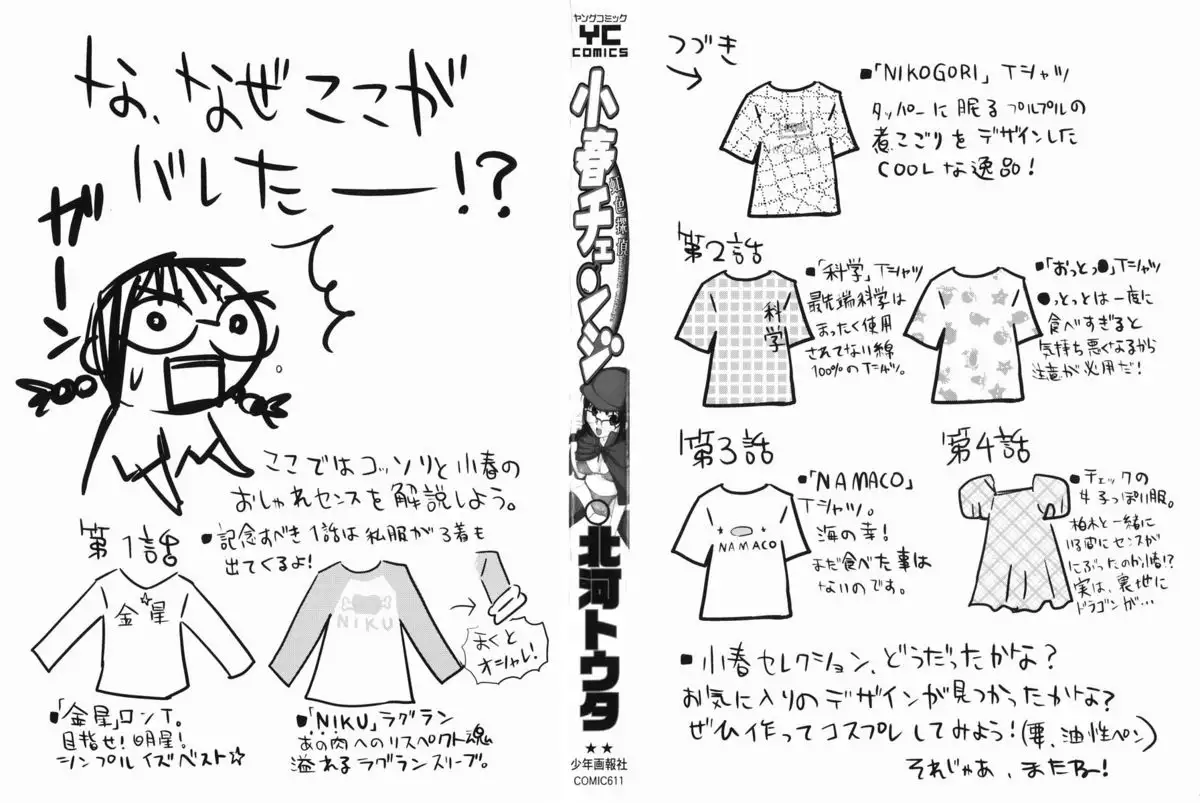 な、なぜここが
バレたー!?
ガーン
ここではコッソリと小春の
おしゃれセンスを解説しよう。
第1話
■記念すべき1話は私服が3着も
出てくるよ!
金星
NIKU
まくと
オシャレ!
■「金星」ロンT。
目指せ!明星!
シンプルイズベスト☆
■「NIKU」ラグラン
あの肉へのリスペクト魂
溢れるラグランスリーブ。
ヤングコミック
YC
COMICS
小春チェンジ
虹色探偵
北河トウタ
★★
少年画報社
COMIC611
つづき
■「NIKOGORI」Tシャツ
タッパーに眠るプルプルの
煮こごりをデザインした
COOLな逸品!
NIKOGORI
第2話
■「科学」Tシャツ
最先端科学は
まったく使用
されてない綿
100%のTシャツ。
科学
■「おっとっ●」Tシャツ
●っとっとは一度に
食べすぎると
気持ち悪くなるから
注意が必用だ!
第3話
■「NAMACO」
Tシャツ。
海の幸!
まだ食べた事は
ないのです。
NAMACO
第4話
■チェックの
女子っぽい服。
柏木と一緒に
いる間にセンスが
にぶったのか小春!?
実は、裏地に
ドラゴンが…
■小春セレクション、どうだったかな?
お気に入りのデザインが見つかったかな?
ぜひ作ってコスプレしてみよう!(要、油性ペン)
それじゃあ、またねー!